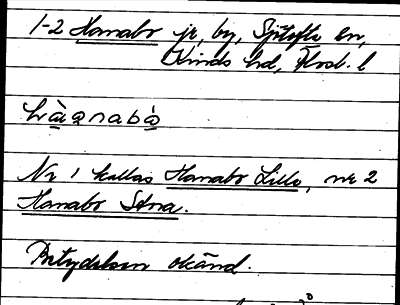 1-2 Hanabo jr, by, Sjötofta sn,
Kinds hd, Älvsb. l
Nr 1 kallas Hanabo Lilla, nr 2
Hanabo Stora.
Betydelsen okänd.